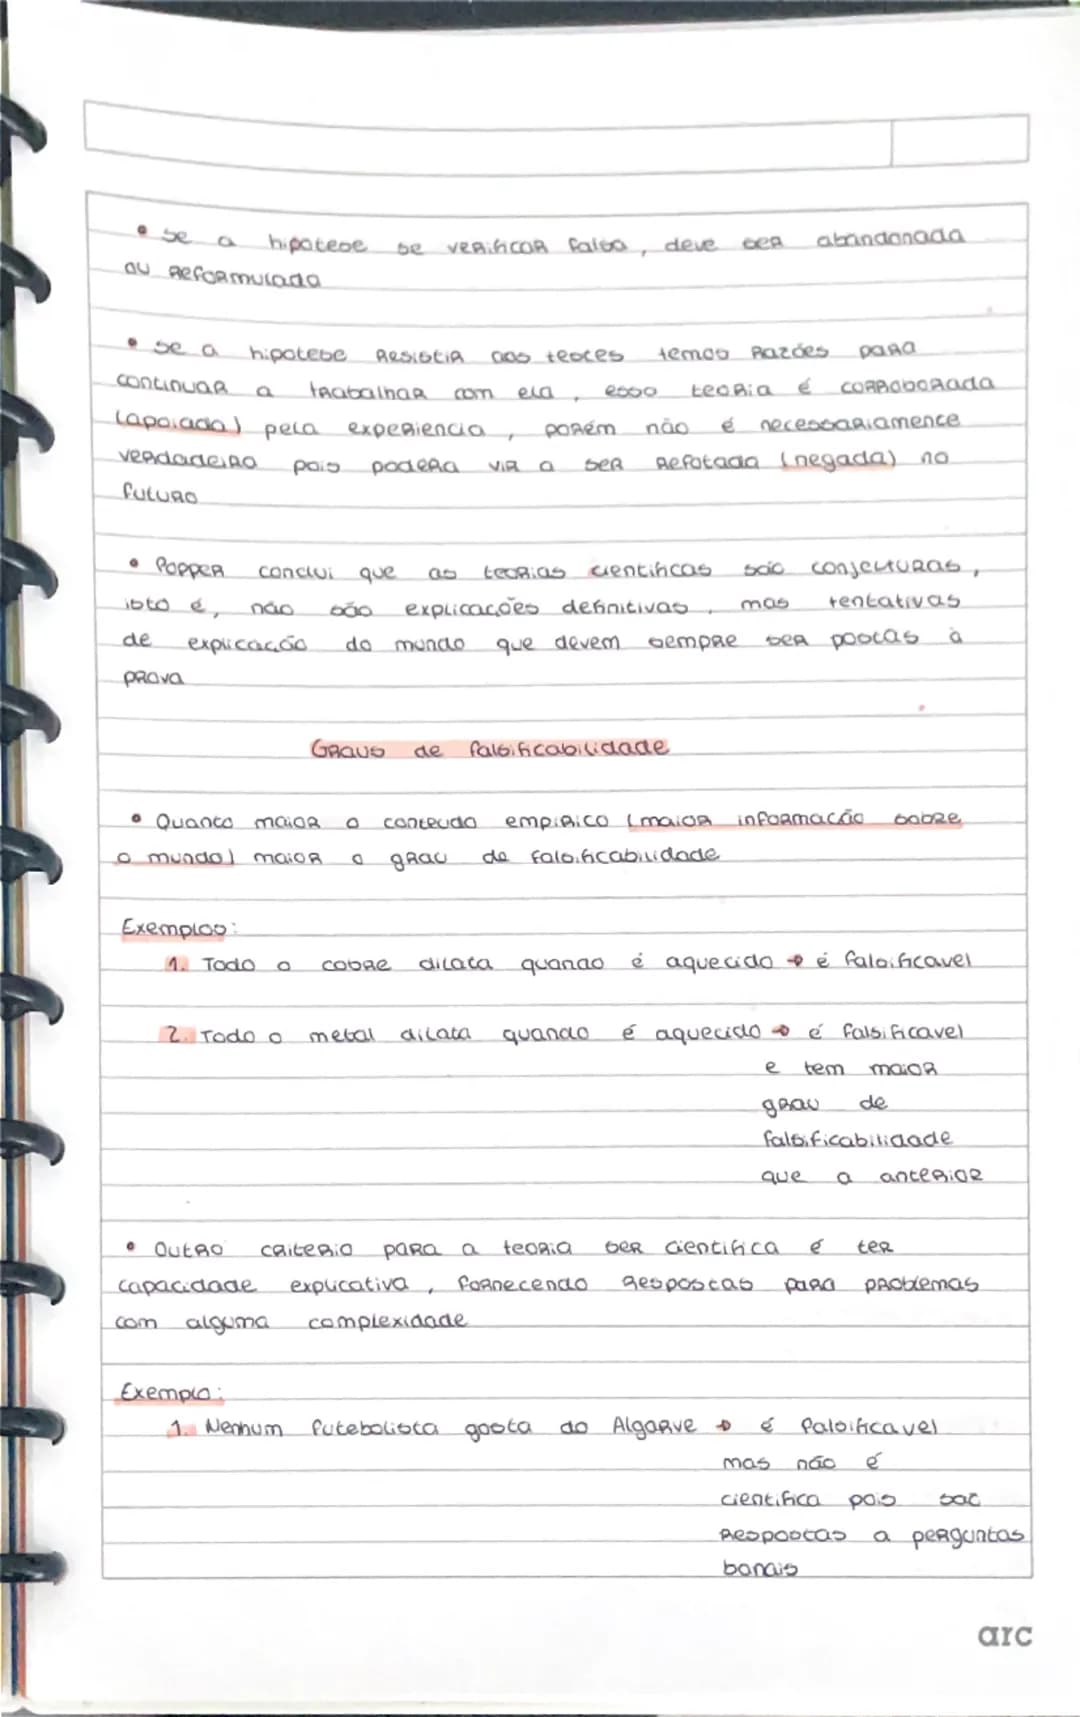 • Se a hipotese se verificar falsa, deve ser abandonada
ou reformulada
• Se a hipotese resistir aos testes temos razões para
continuar a trabalhar com ela, essa teoria é corroborada
(apoiada) pela experiencia, porém não é necessariamente
verdadeira pois podera vir a ser refutada (negada) no
futuro
• Popper conclui que as teorias cientificas são conjeturas,
isto é, não são explicações definitivas, mas tentativas
de explicação do mundo que devem sempre ser postas à
prova
Graus de falsificabilidade
• Quanto maior o conteudo empirico (maior informação sobre
o mundo) maior o grau de falsificabilidade
Exemplos:
1. Todo o cobre dilata quando é aquecido → é falsificavel
2. Todo o metal dilata quando é aquecido → é falsificavel
e tem maior
grau de
falsificabilidade
que a anterior
• Outro criterio para a teoria ser cientifica é ter
capacidade explicativa, fornecendo respostas para problemas
com alguma complexidade
Exemplo:
1. Nenhum futebolista gosta do Algarve → é falsificavel
mas não é
cientifica pois sao
respostas a perguntas
banais
arc